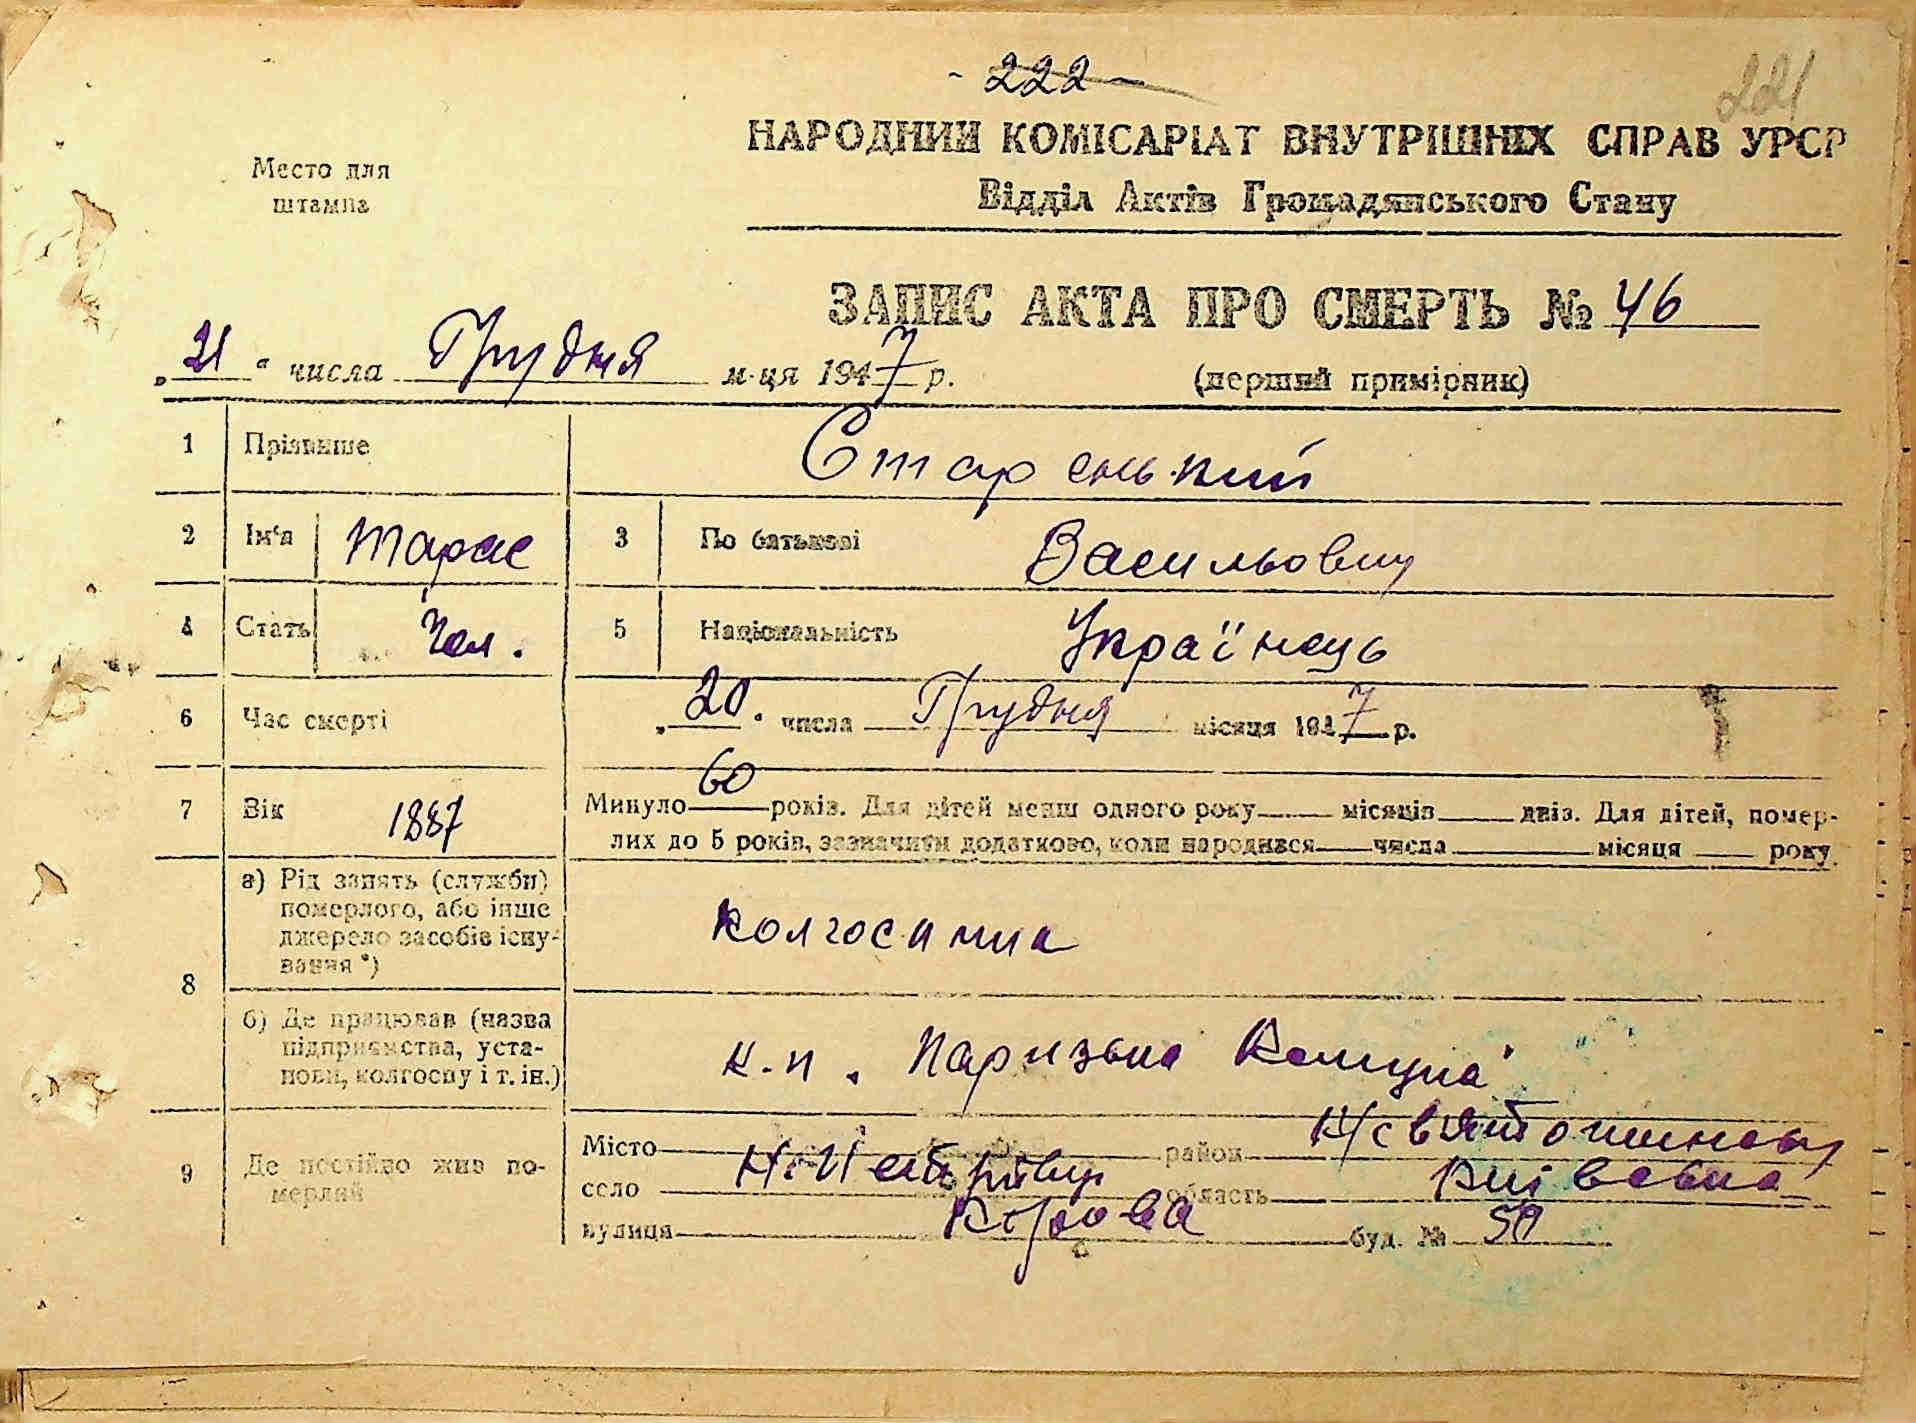 - 222 -
221
НАРОДНИЙ КОМІСАРІАТ ВНУТРІШНІХ СПРАВ УРСР
Место для
штампа
Відділ Актів Громадянського Стану
ЗАПИС АКТА ПРО СМЕРТЬ № 46
„21“ числа Грудня м-ця 1947 р.
(перший примірник)
1 Прізвище Старенький
2 Ім‘я Тарас 3 По батькові Васильович
4 Стать Чол. 5 Національність Українець
6 Час смерті „20“ числа Грудня місяця 1947 р.
7 Вік 1887 Минуло 60 років. Для дітей менш одного року місяців днів. Для дітей, помер-
лих до 5 років, зазначити додатково, коли народився числа місяця року
8 а) Рід занять (служби)
померлого, або інше
джерело засобів існу-
вання *)
колгоспник
б) Де працював (назва
підприємства, уста-
нови, колгоспу і т. ін.)
к.п „Паризька Комуна“
9 Де постійно жив по-
мерлий
Місто район К/Святошинськ
село область Київська
вулиця Кірова буд. № 50